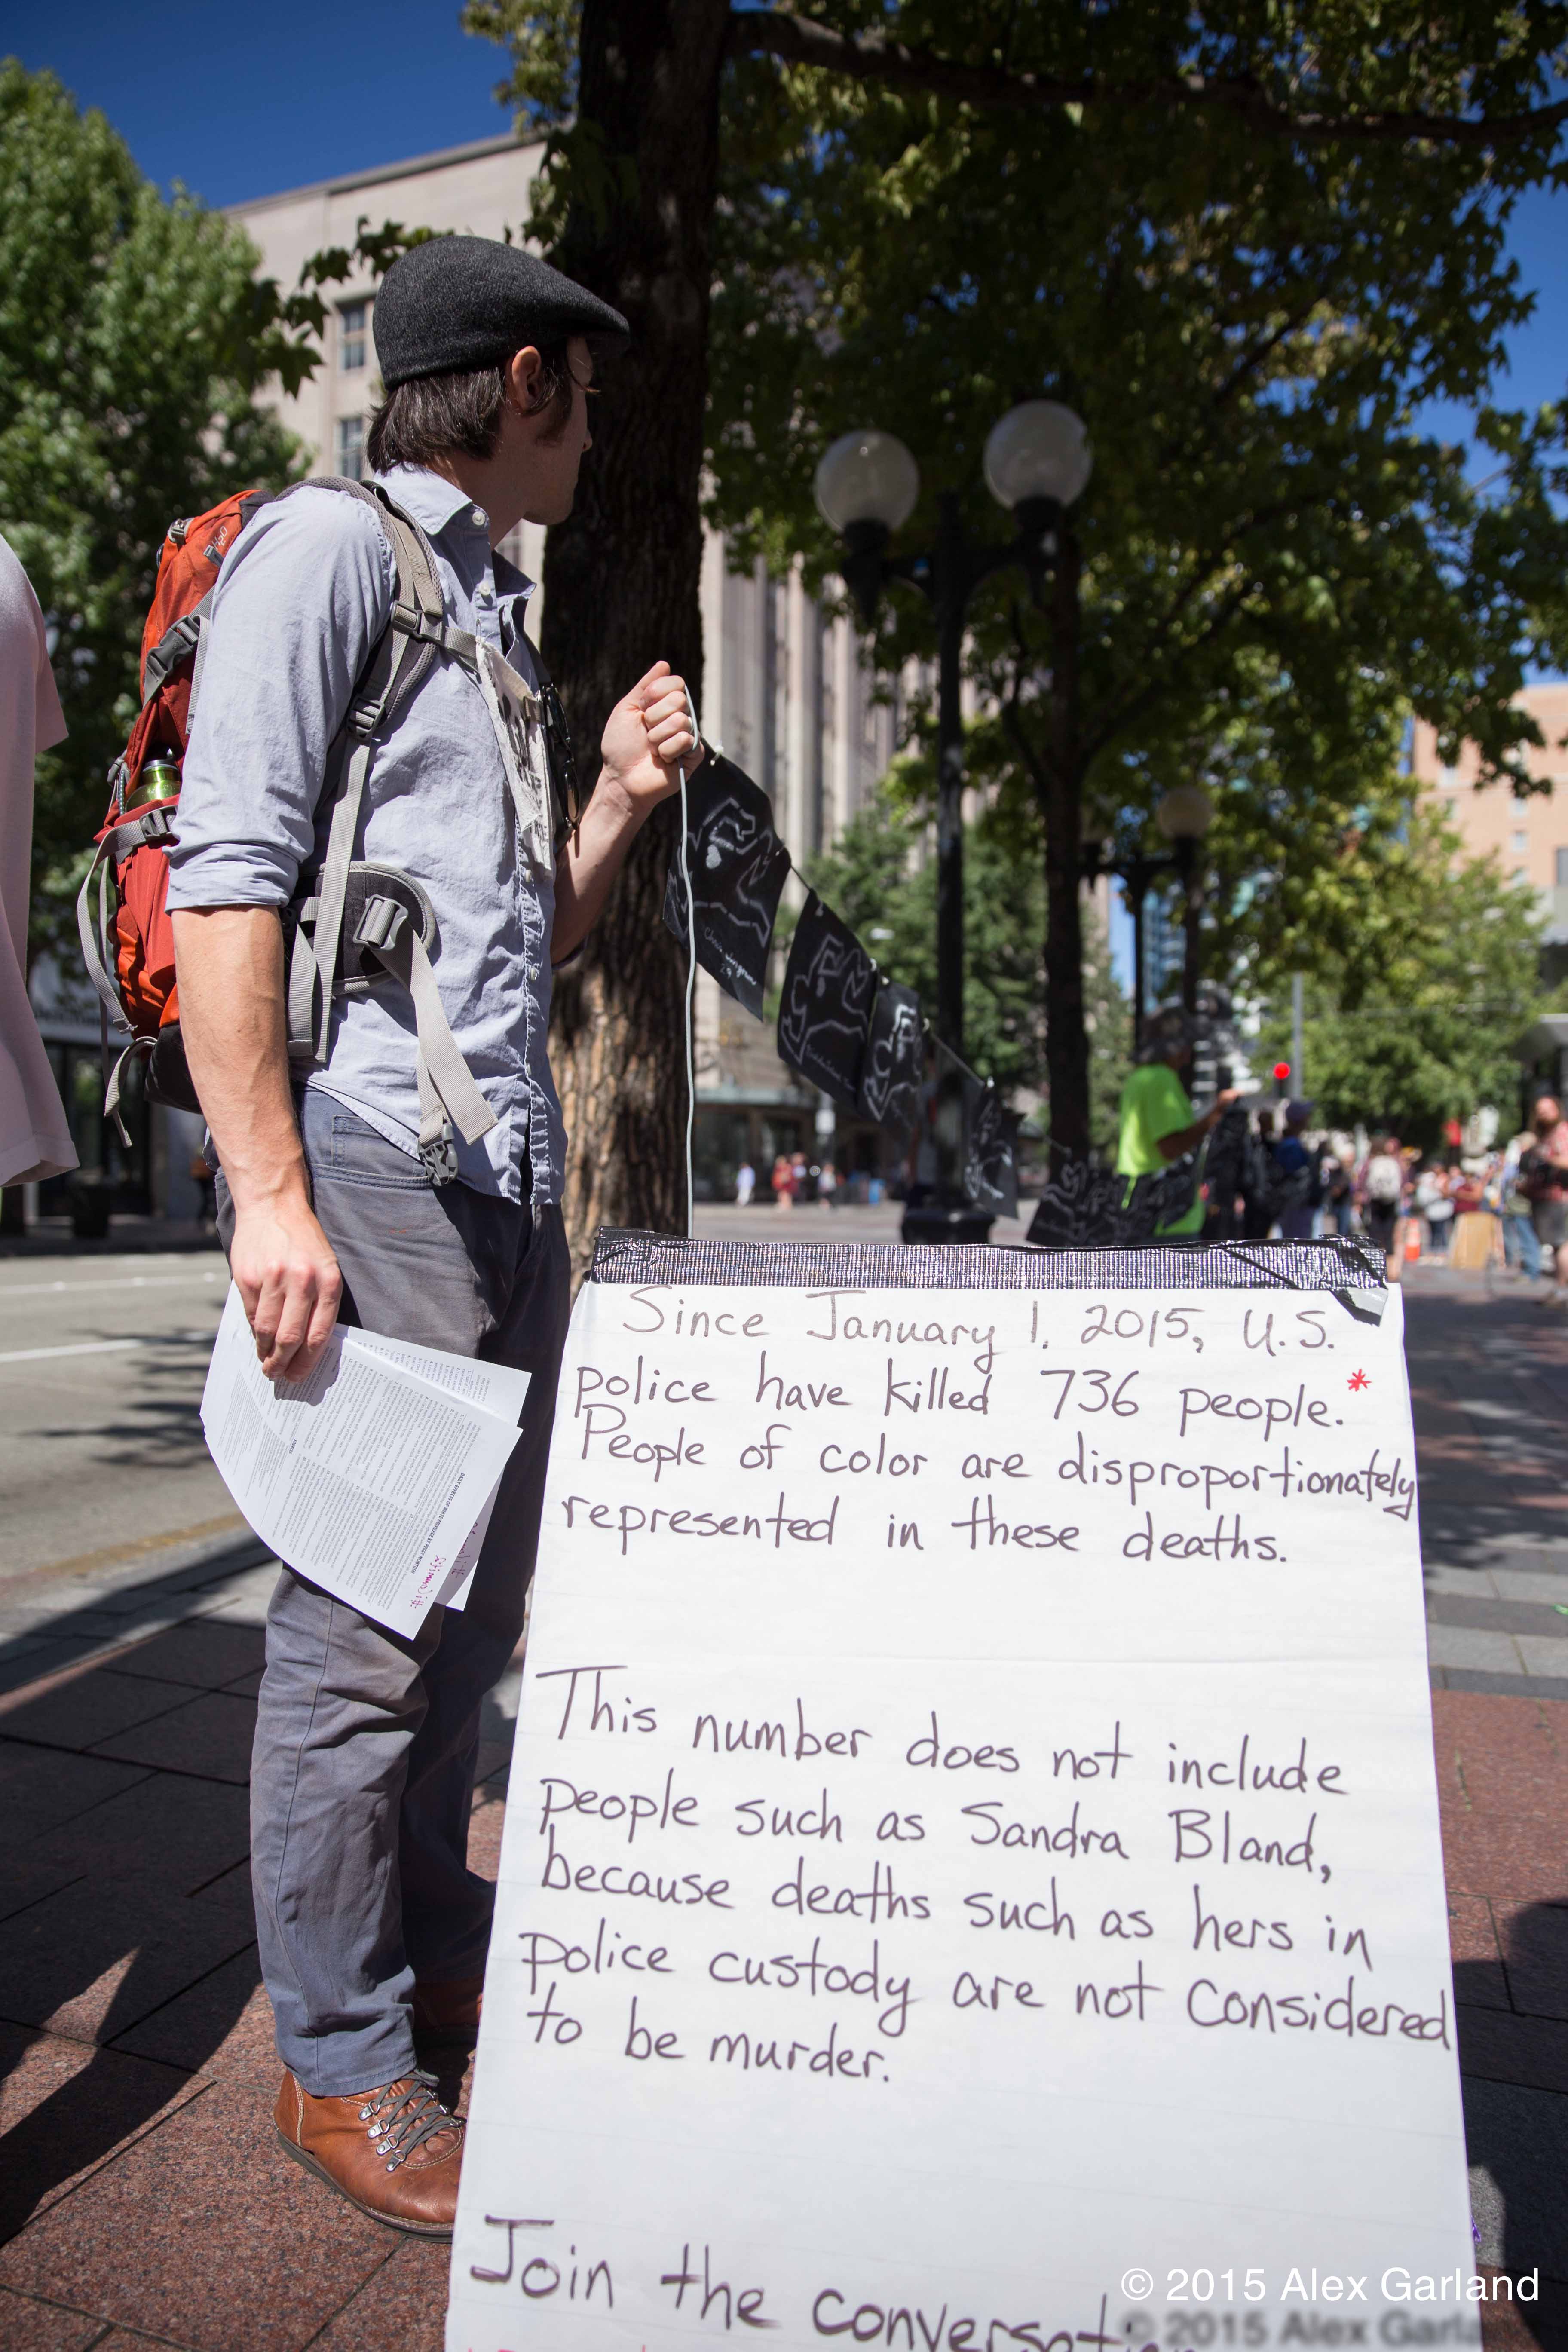 Since January 1, 2015, U.S.
police have killed 736 people.*
People of color are disproportionately
represented in these deaths.
This number does not include
people such as Sandra Bland,
because deaths such as hers in
police custody are not considered
to be murder.
Join the conversation
DAILY EFFECTS OF WHITE PRIVILEGE BY PEGGY MCINTOSH
© 2015 Alex Garland